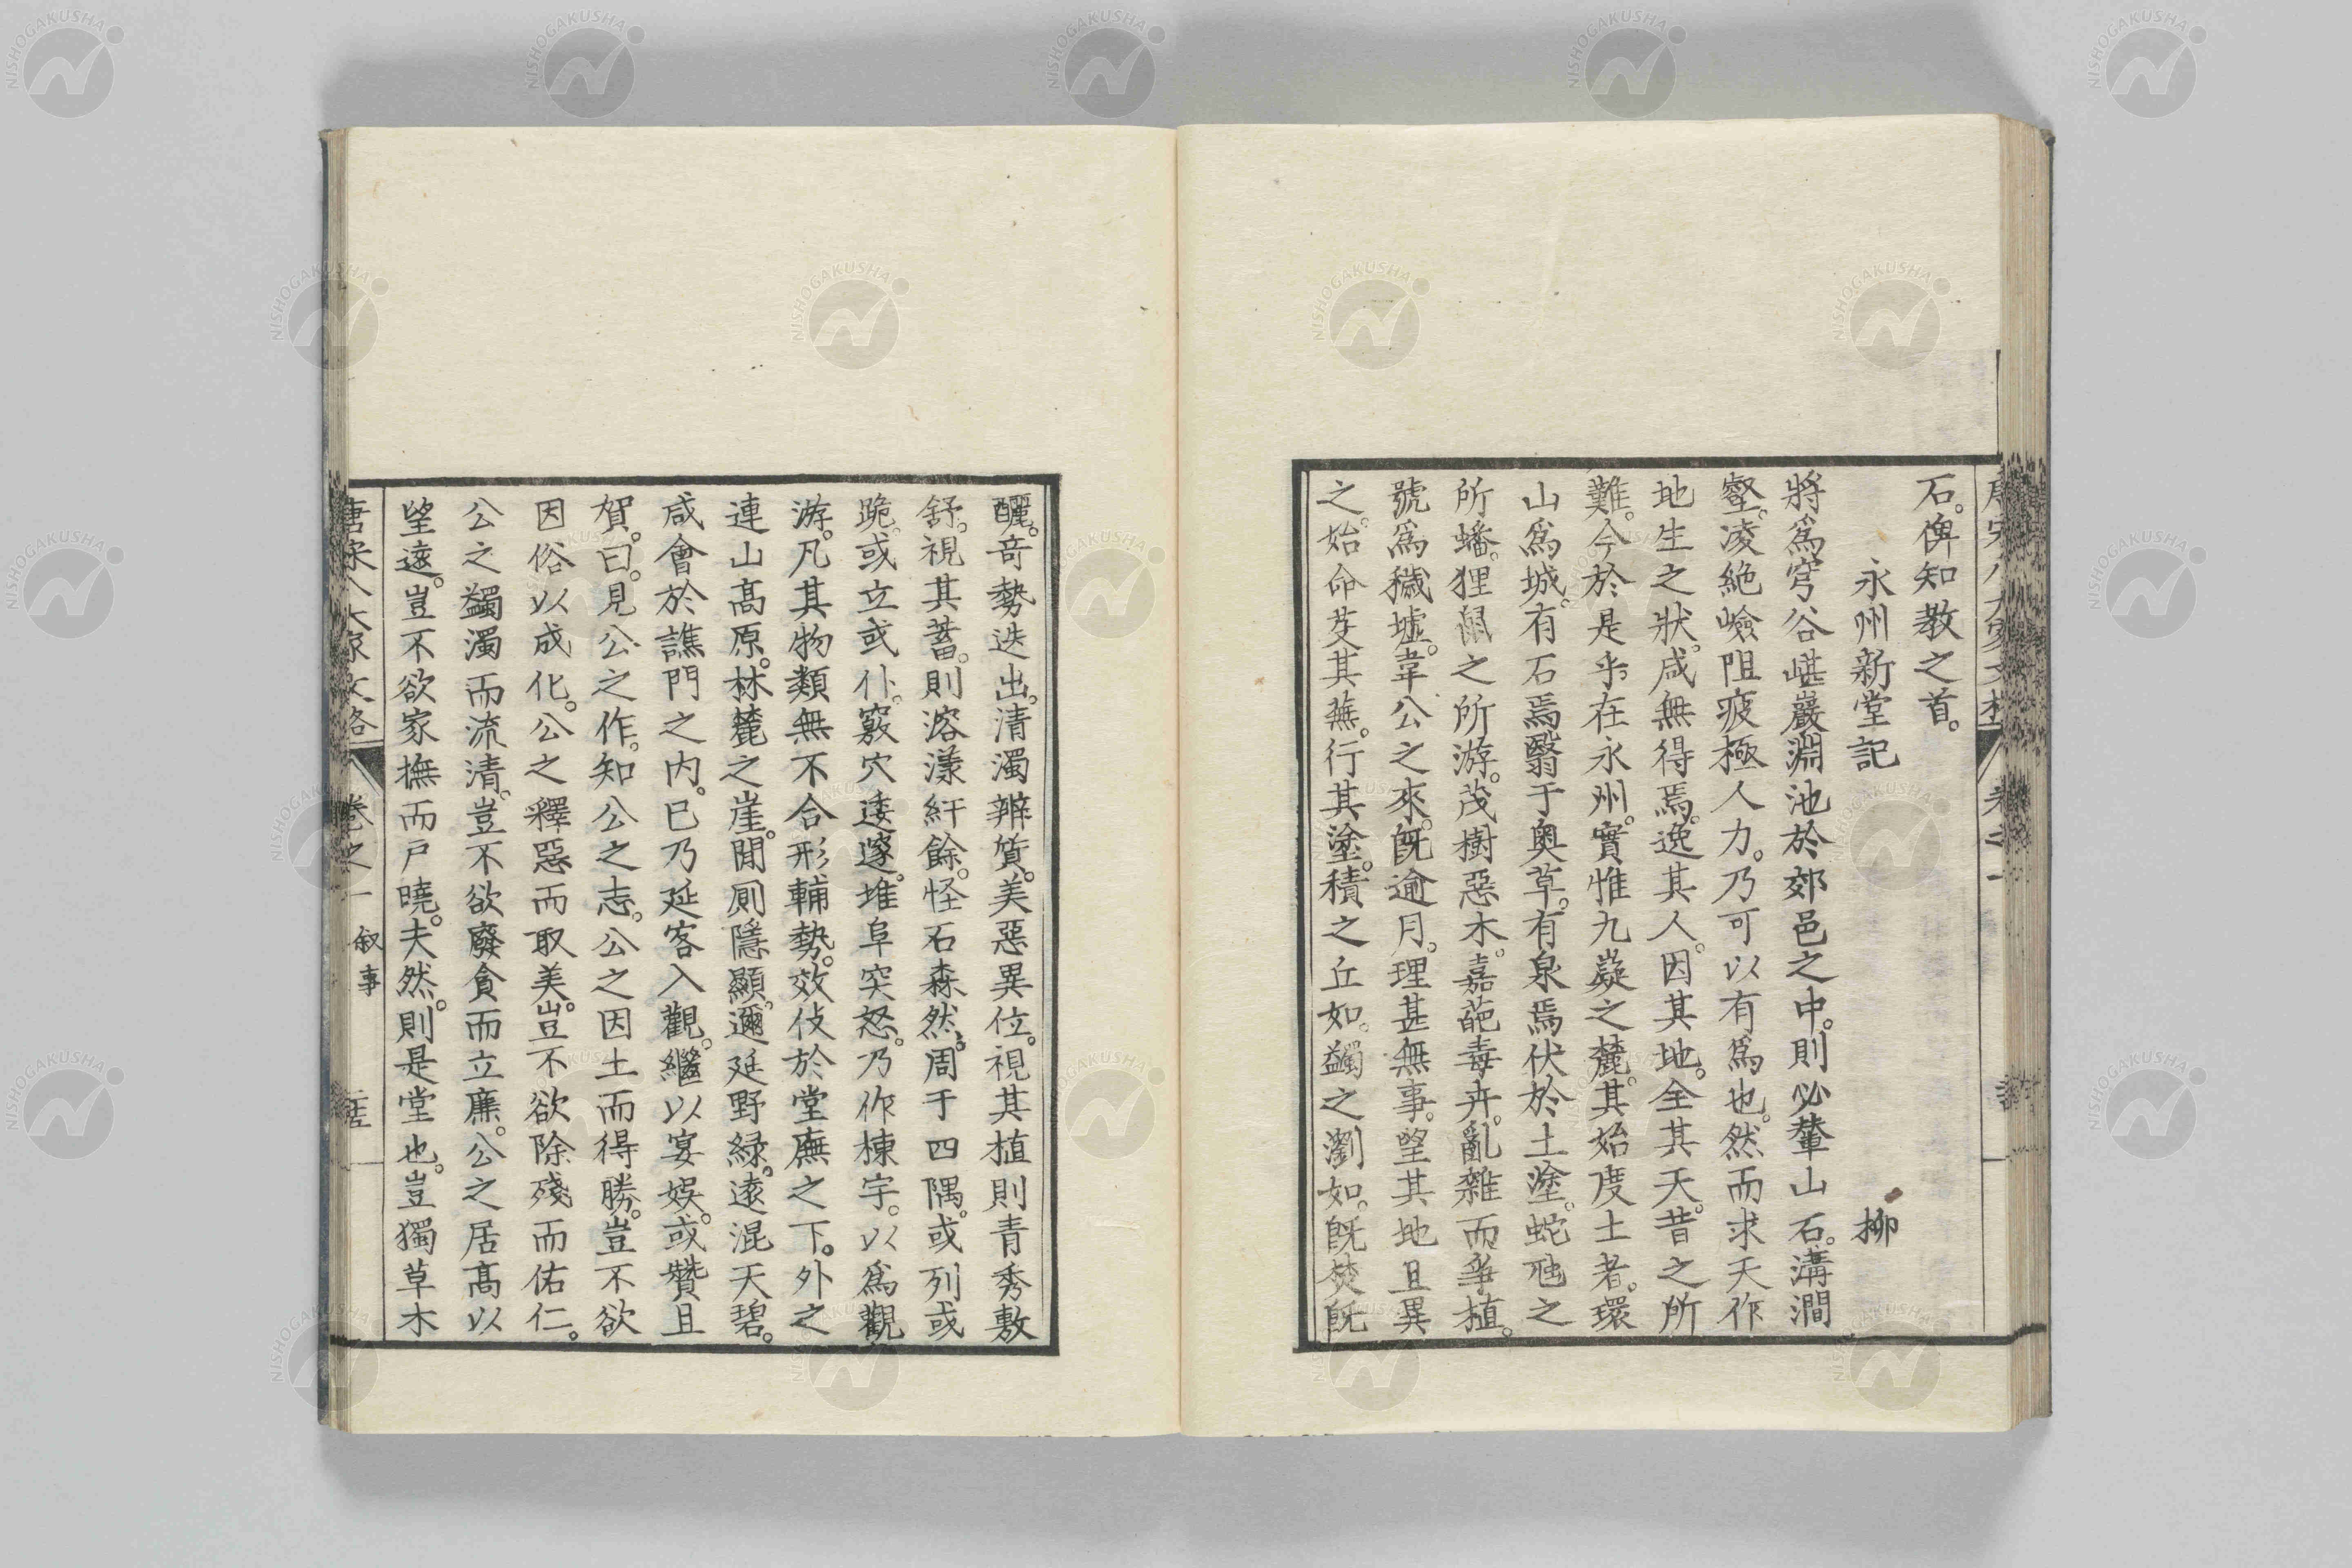 石。俾知教之首。
永州新堂記　柳
將爲穹谷嵁巖淵池於郊邑之中。則必輦山石。溝澗
壑。凌絶嶮阻。疲極人力。乃可以有爲也。然而求天作
地生之狀。咸無得焉。逸其人。因其地。全其天。昔之所
難。今於是乎在。永州。實惟九嶷之麓。其始度土者。環
山爲城。有石焉翳于奥草。有泉焉伏於土塗。蛇虺之
所蟠。狸鼠之所游。茂樹惡木。嘉葩毒卉。亂雜而爭植。
號爲穢墟。韋公之來。旣逾月。理甚無事。望其地且異
之。始命芟其蕪。行其塗。積之丘如。蠲之瀏如。旣焚旣
釃。奇勢迭出。清濁辨質。美惡異位。視其植則青秀敷
舒。視其蓄。則溶漾紆餘。怪石森然。周于四隅。或列或
跪。或立或仆。竅穴逶邃。堆阜突怒。乃作棟宇。以爲觀
游。凡其物類無不合形輔勢。效伎於堂廡之下。外之
連山高原。林麓之崖。閒厠隱顯。邇延野綠。遠混天碧。
咸會於譙門之内。已乃延客入觀。繼以宴娯。或贊且
賀。曰。見公之作。知公之志。公之因土而得勝。豈不欲
因俗以成化。公之釋惡而取美。豈不欲除殘而佑仁。
公之蠲濁而流清。豈不欲廢貪而立廉。公之居高以
望遠。豈不欲家撫而戸曉。夫然。則是堂也。豈獨草木
唐宋八大家文格　卷之一　叙事
NISHOGAKUSHA